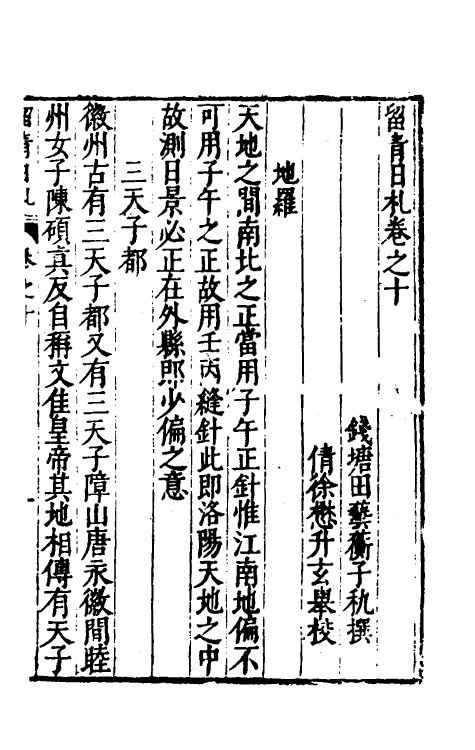 留青日札卷之十
錢塘田藝蘅子秇撰
倩徐懋升玄舉校
地羅
天地之間南北之正當用子午正針惟江南地偏不
可用子午之正故用壬丙縫針此即洛陽天地之中
故測日景必正在外縣即少偏之意
三天子都
徽州古有三天子都又有三天子障山唐永徽間睦
州女子陳碩真反自稱文佳皇帝其地相傳有天子
留青日札 卷之十 一